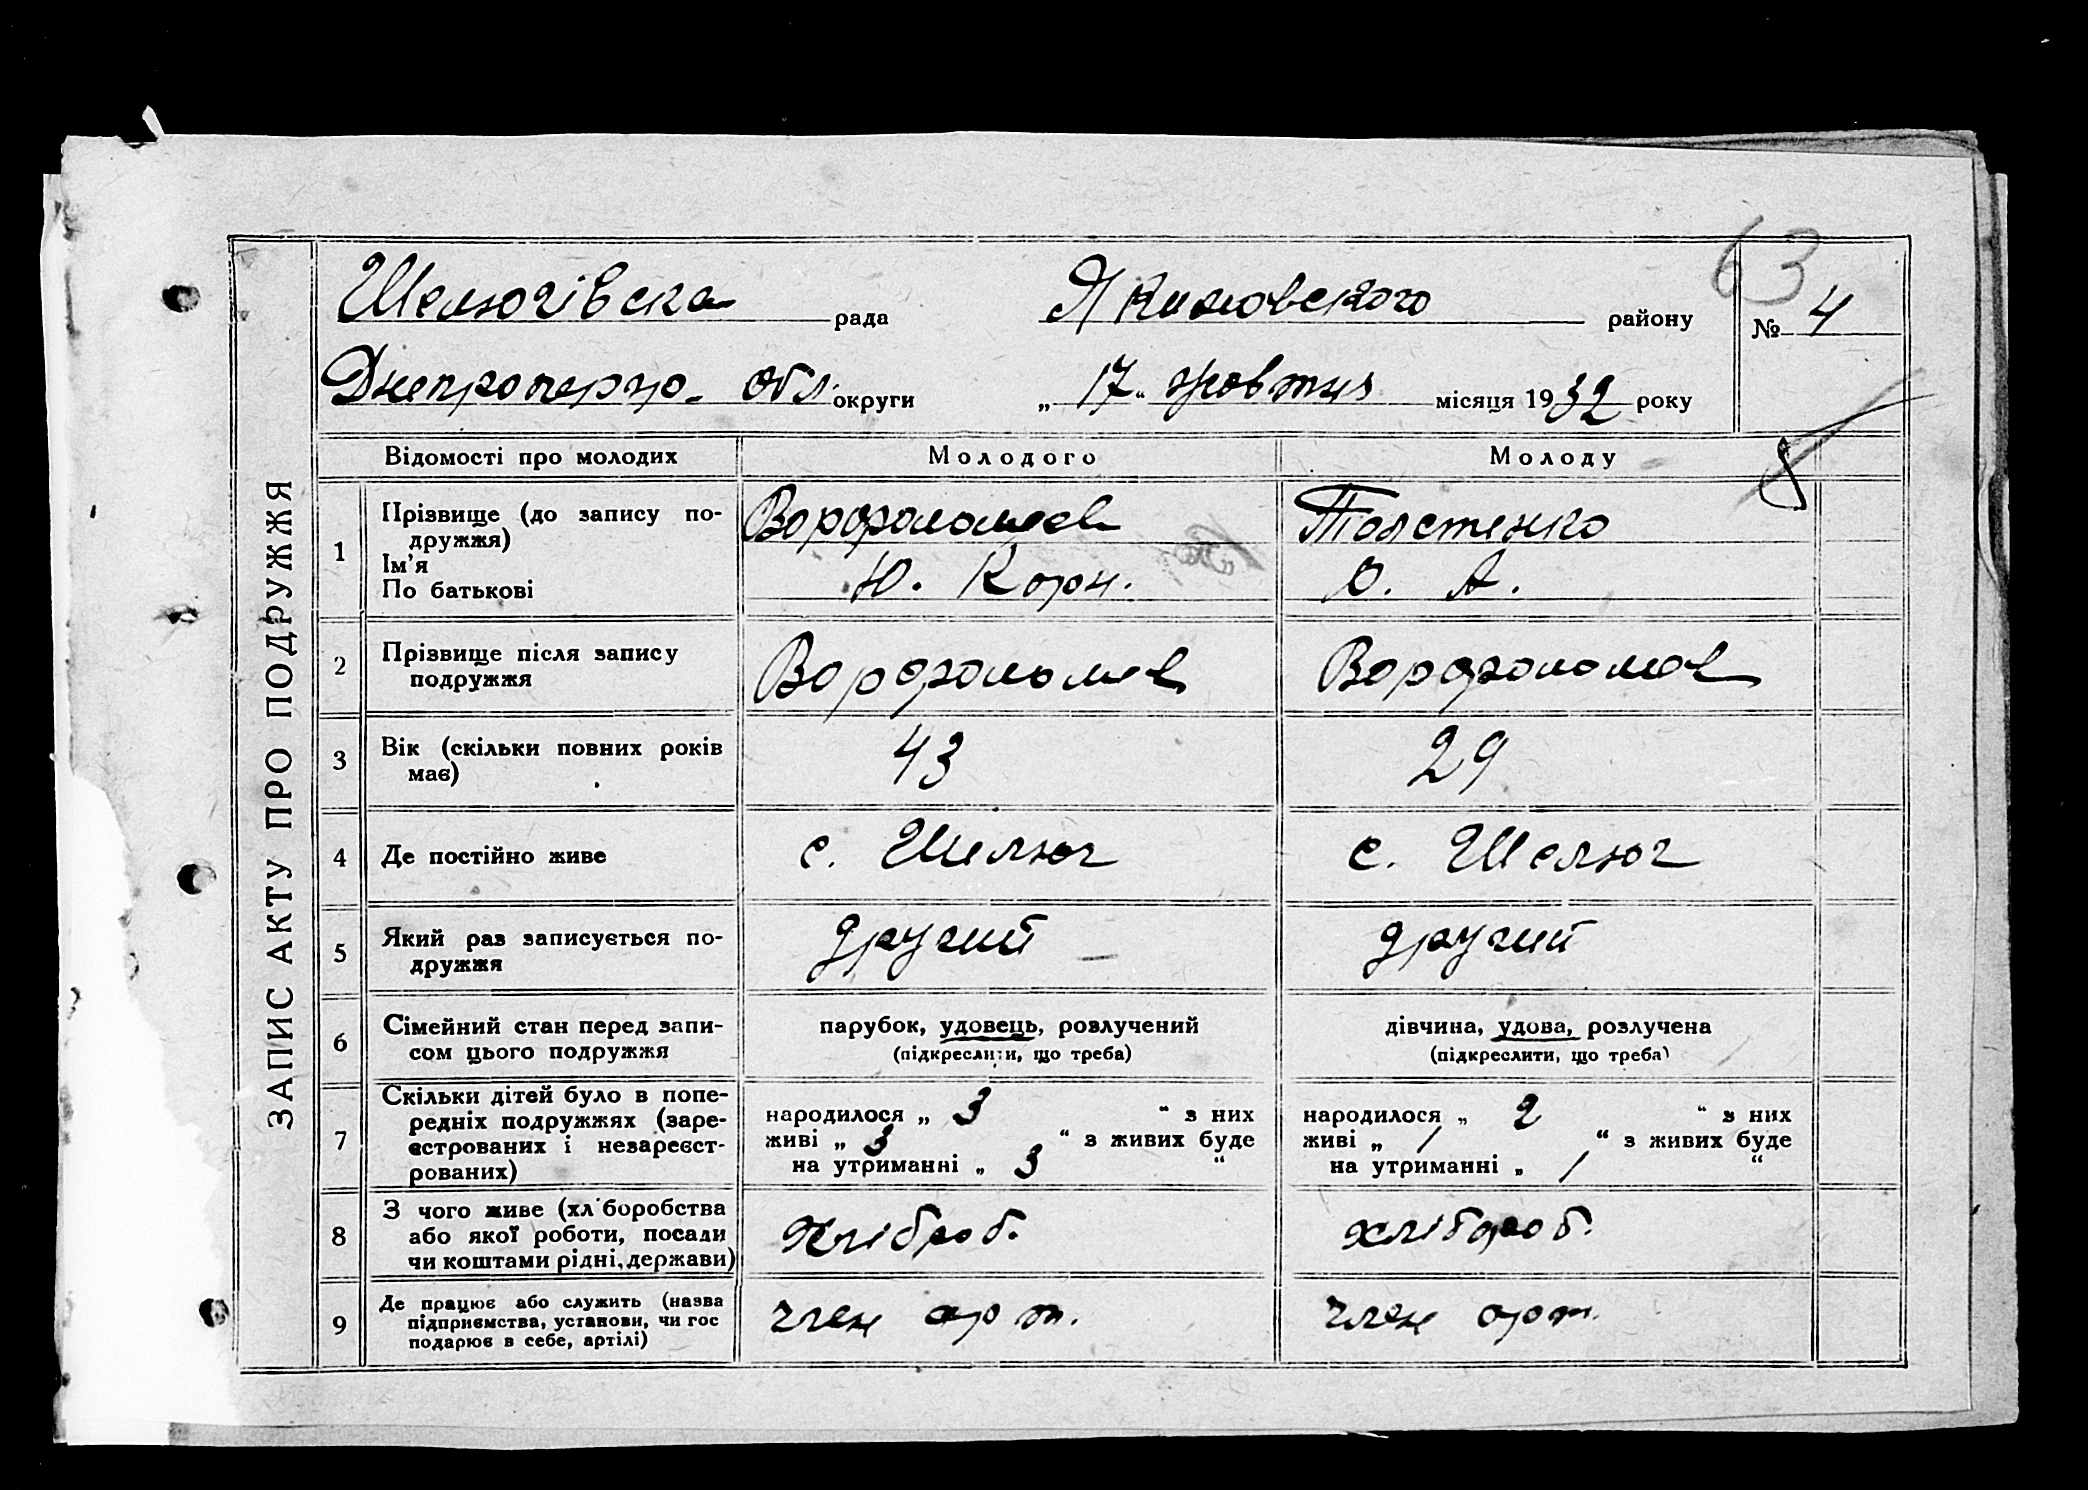 63
Шелюгівска рада Якимовского району № 4
Днепропетро. обл. округи „17“ жовтня місяця 1932 року
ЗАПИС АКТУ ПРО ПОДРУЖЖЯ
Відомості про молодих Молодого Молоду
1 Прізвище (до запису по-
дружжя)
Ім'я
По батькові
Ворфоломеев
Ю. Корн.
Толстенко
О. А.
2 Прізвище після запису
подружжя
Ворфоломев
Ворфоломев
3 Вік (скільки повних років
має)
43
29
4 Де постійно живе
с. Шелюг
с. Шелюг
5 Який раз записується по-
дружжя
другий
другий
6 Сімейний стан перед запи-
сом цього подружжя
парубок, удовець, розлучений
(підкреслити, що треба)
дівчина, удова, розлучена
(підкреслити, що треба)
7 Скільки дітей було в попе-
редніх подружжях (заре-
єстрованих і незареєст-
рованих)
народилося „ 3 “ з них
живі „ 3 “ з живих буде
на утриманні „ 3 “
народилося „ 2 “ з них
живі „ 1 “ з живих буде
на утриманні „ 1 “
8 З чого живе (хліборобства
або якої роботи, посади
чи коштами рідні, держави)
хлібороб.
хлібороб.
9 Де працює або служить (назва
підприємства, установи, чи гос
подарює в себе, артілі)
член арт.
член арт.